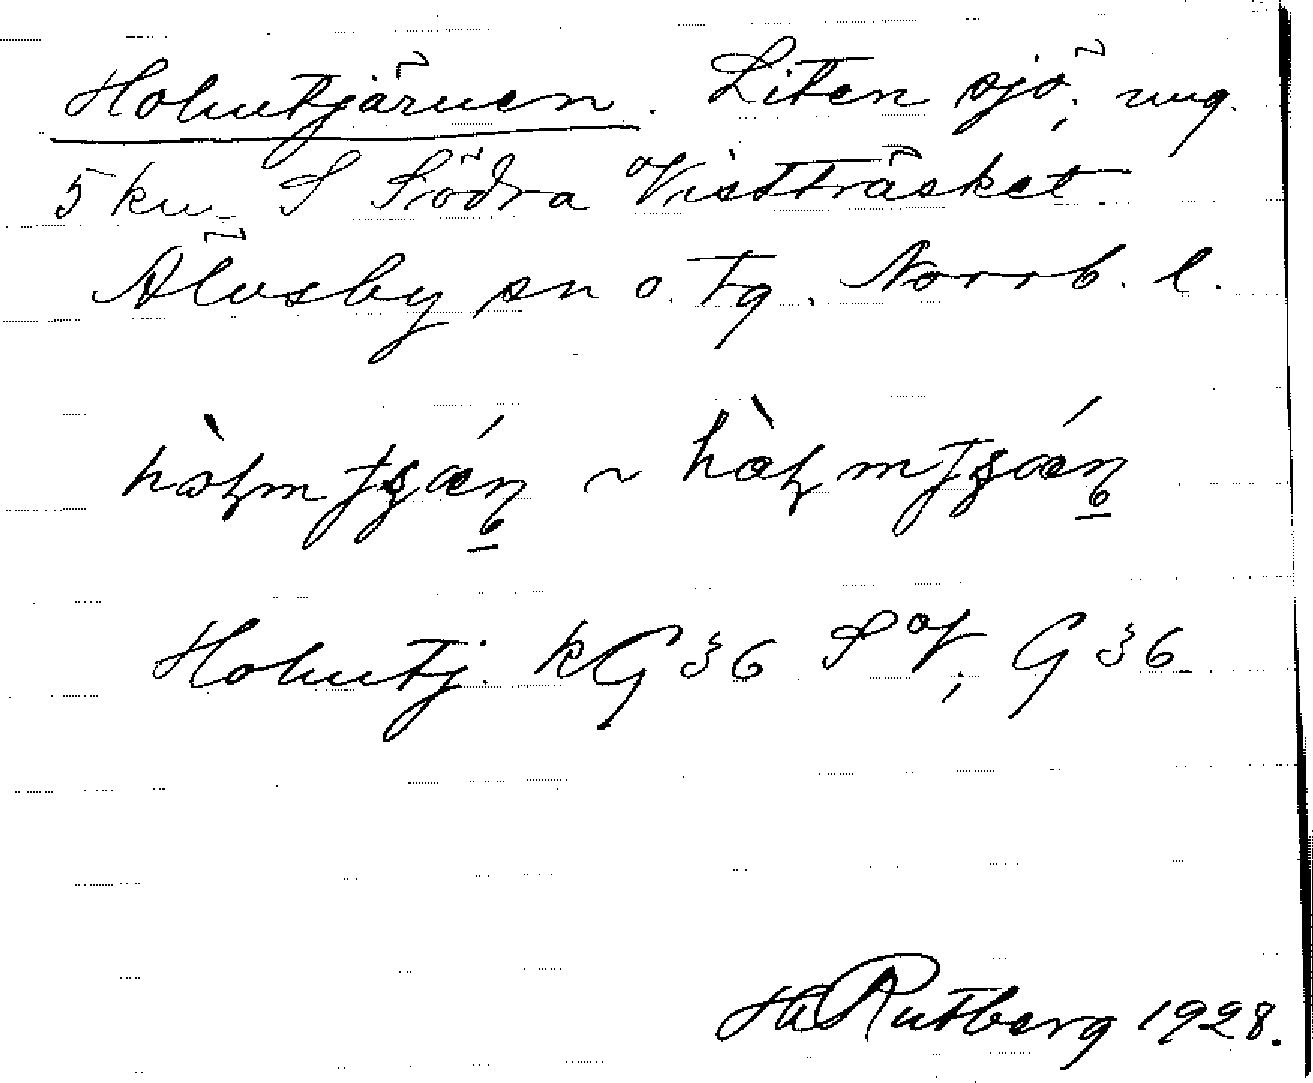 Holmtjärnen. Liten sjö, ung.
5 km S Södra Vistträsket
Älvsby sn o. tg. Norrb. l.
Holmtj. kG 36 SV, G 36
Hll Rutberg 1928.